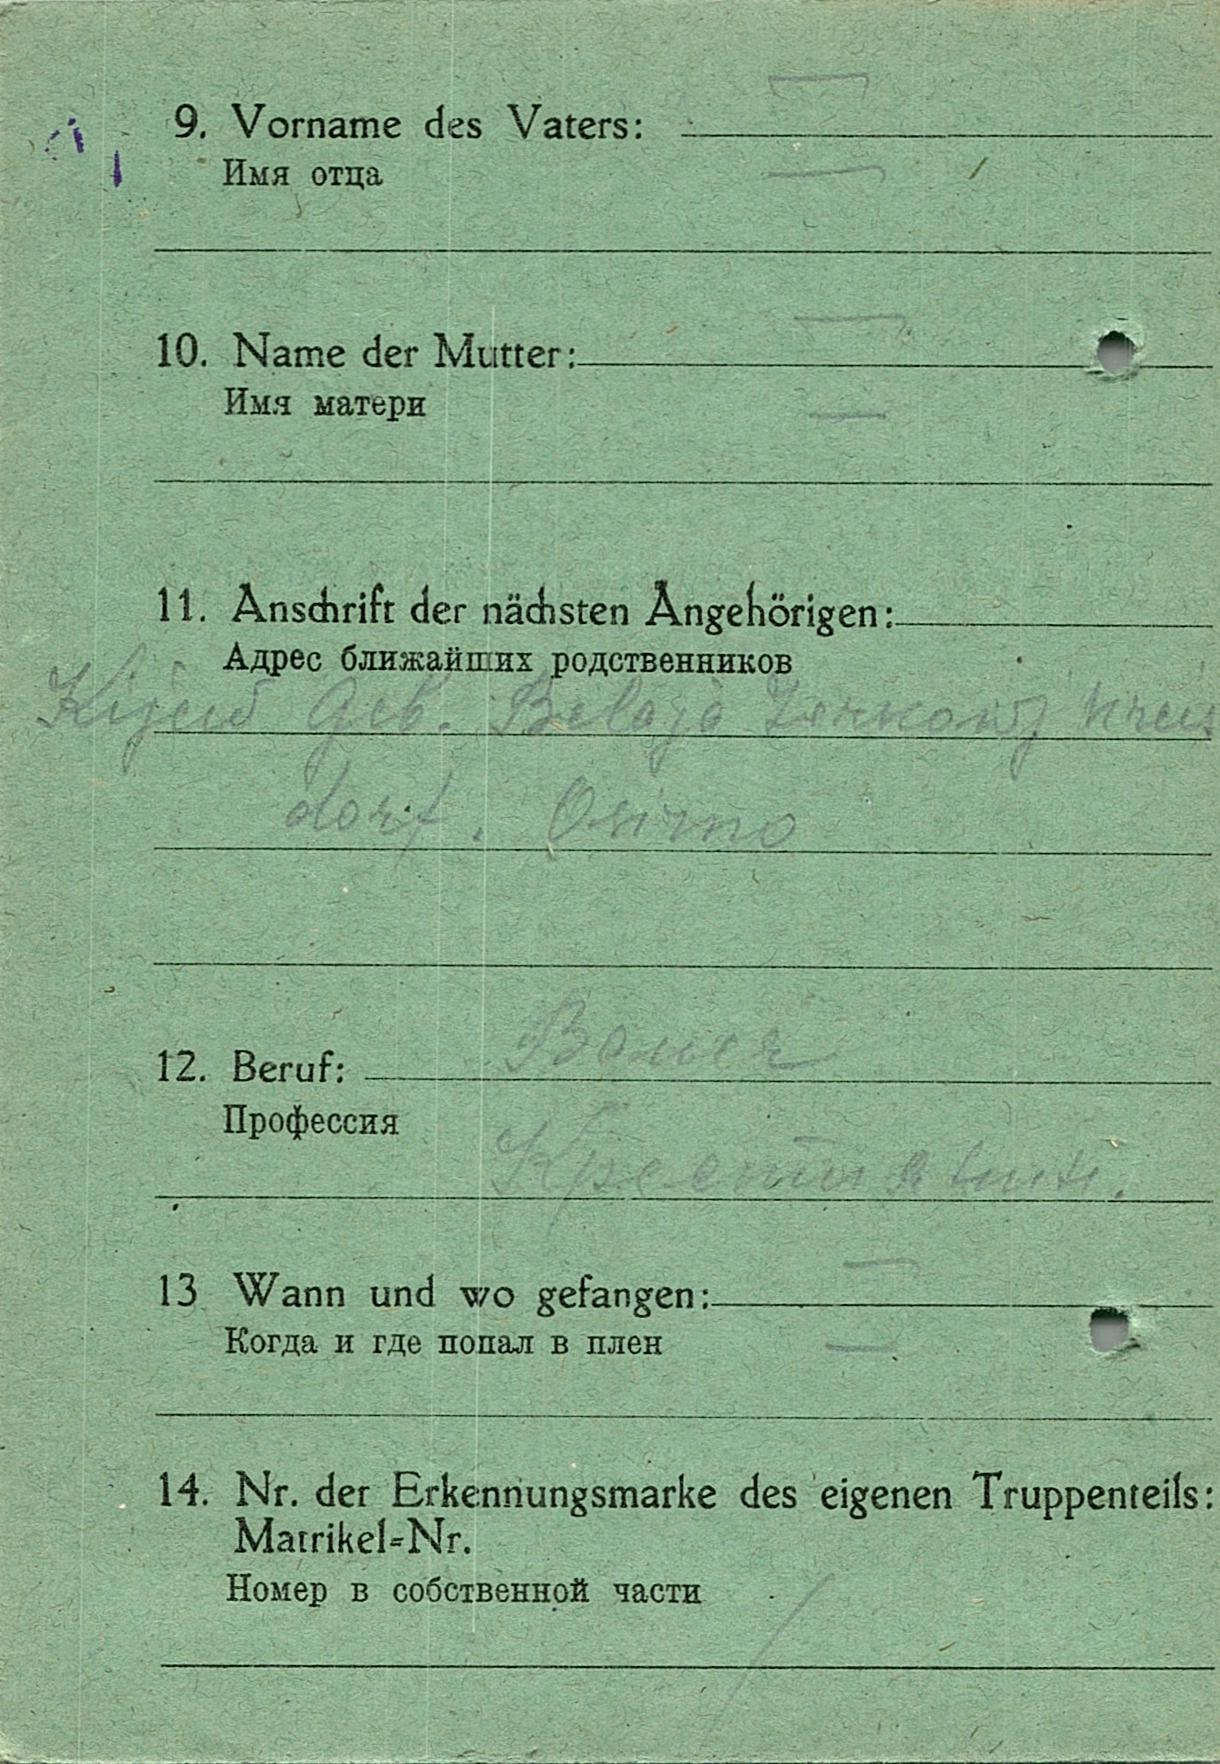 9. Vorname des Vaters: —
Имя отца —
10. Name der Mutter: —
Имя матери —
11. Anschrift der nächsten Angehörigen:
Адрес ближайших родственников
Kijew Geb. Belaja Zerkowj Kreis
dorf. Osirno
12. Beruf: Bauer
Профессия Крестянин.
13 Wann und wo gefangen: —
Когда и где попал в плен —
14. Nr. der Erkennungsmarke des eigenen Truppenteils:
Matrikel=Nr.
Номер в собственной части